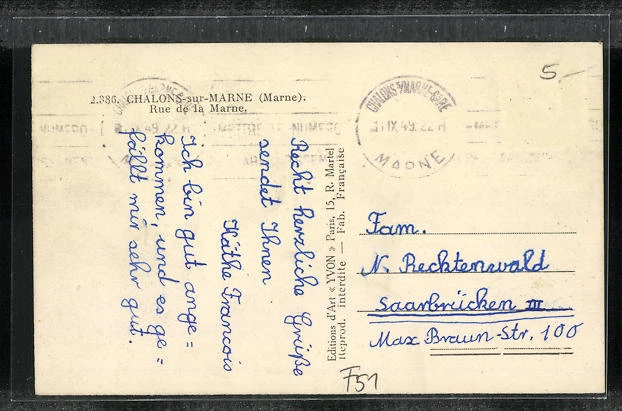 2.386. CHALONS-sur-MARNE (Marne).
Rue de la Marne.
Recht herzliche Grüße
sendet Ihnen
Käthe Francois
Ich bin gut ange=
kommen, und es ge=
fällt mir sehr gut.
Editions d'Art « YVON » Paris, 15, R. Martel
Reprod. interdite — Fab. Française
CHALONS S/MARNE-GARE
IX 49
MARNE
5.-
Fam.
N. Rechtenwald
Saarbrücken III
Max Braun-Str. 100
F51